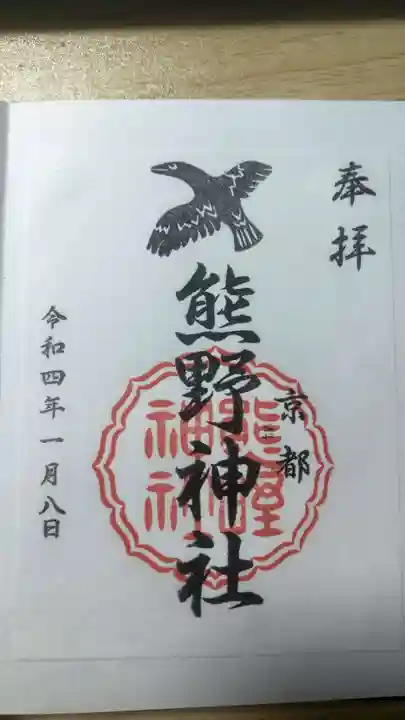 奉拝
京都
熊野神社
令和四年一月八日